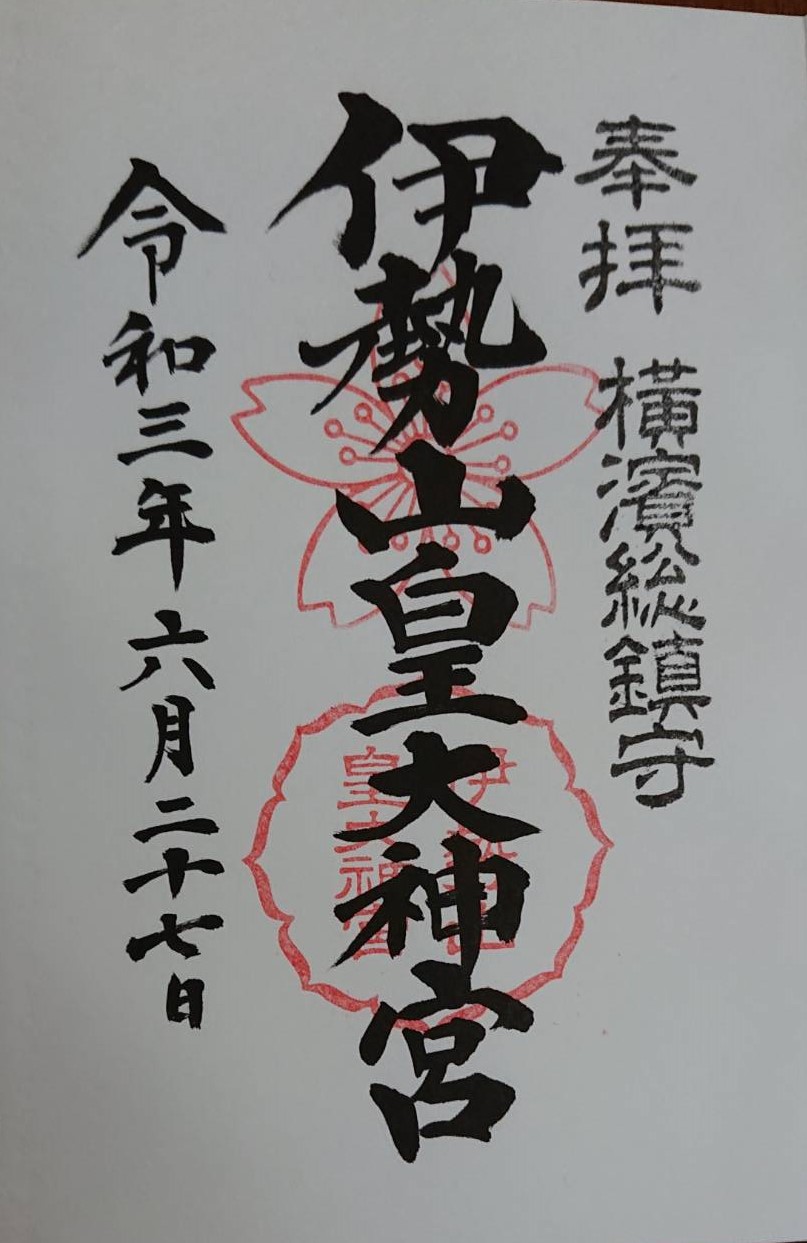 奉拝 橫濱総鎮守
伊勢山皇大神宮
伊勢山
皇大神宮
令和三年六月二十七日